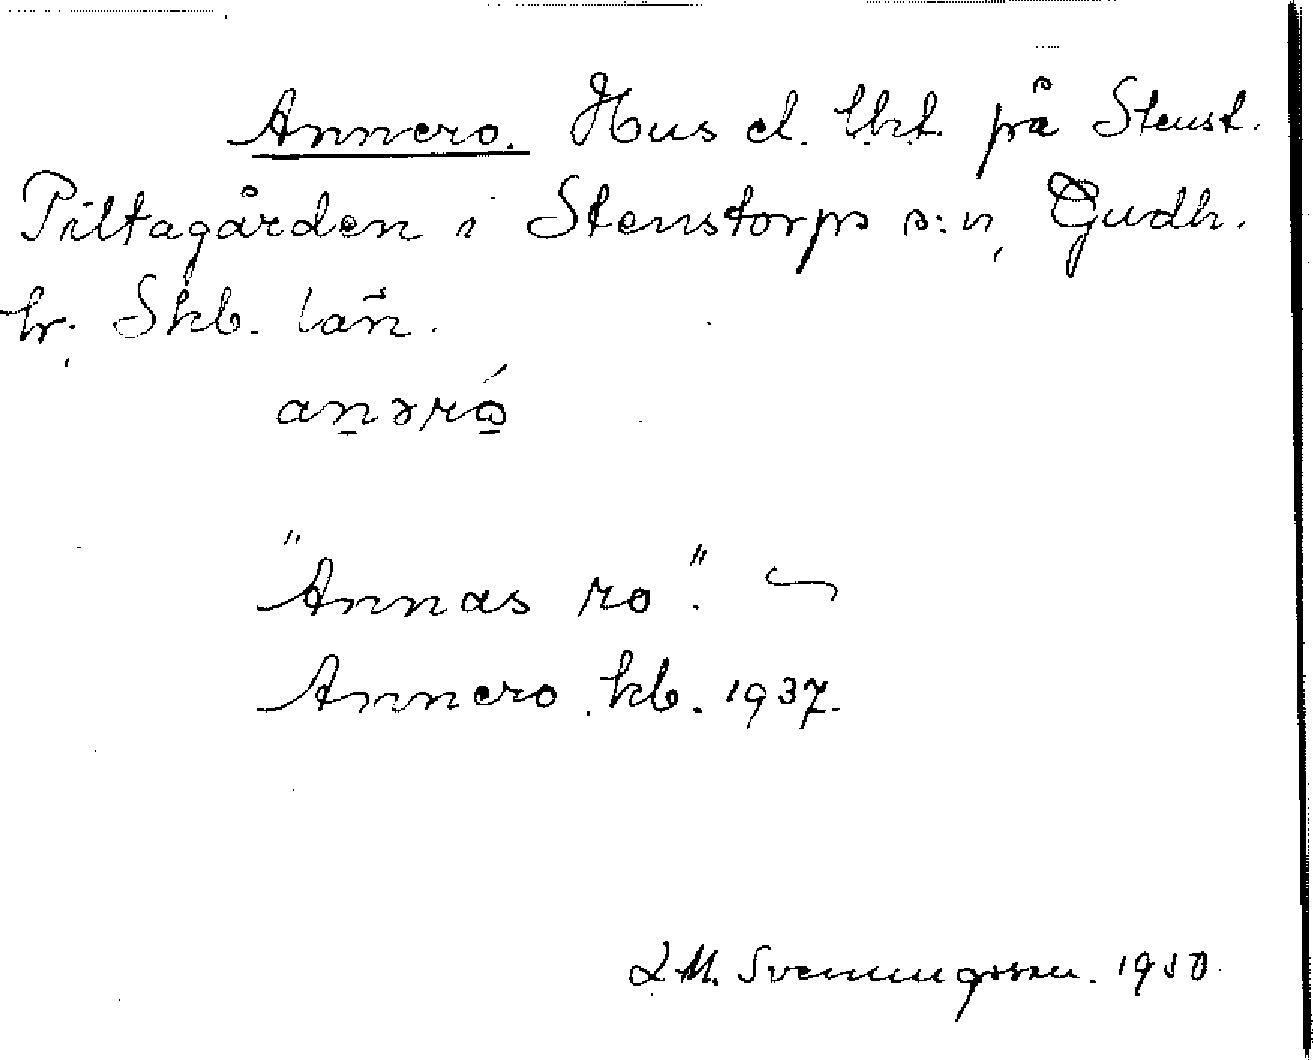 Annero. Hus el. lht. på Stenst.
Piltagården i Stenstorps s:n, Gudh.
hr. Skb. län.
anəró̱
"Annas ro".
Annero kb. 1937.
L M. Svenungsson. 1930.